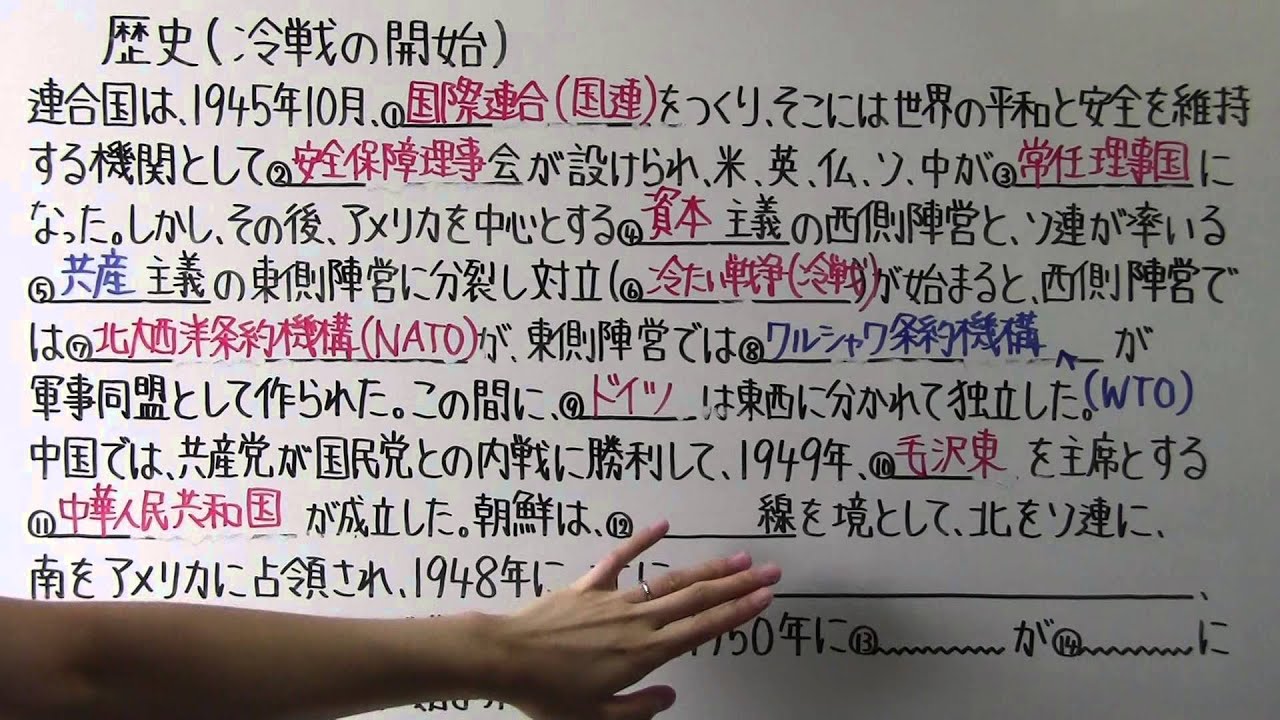 歴史(冷戦の開始)
連合国は、1945年10月、①国際連合(国連)をつくり、そこには世界の平和と安全を維持
する機関として②安全保障理事会が設けられ、米、英、仏、ソ、中が③常任理事国に
なった。しかし、その後、アメリカを中心とする④資本主義の西側陣営と、ソ連が率いる
⑤共産主義の東側陣営に分裂し対立(⑥冷たい戦争(冷戦))が始まると、西側陣営で
は⑦北大西洋条約機構(NATO)が、東側陣営では⑧ワルシャワ条約機構が
軍事同盟として作られた。この間に、⑨ドイツは東西に分かれて独立した。(WTO)
中国では、共産党が国民党との内戦に勝利して、1949年、⑩毛沢東を主席とする
⑪中華人民共和国が成立した。朝鮮は、⑫線を境として、北をソ連に、
南をアメリカに占領され、1948年に、
1950年に⑬が⑭に